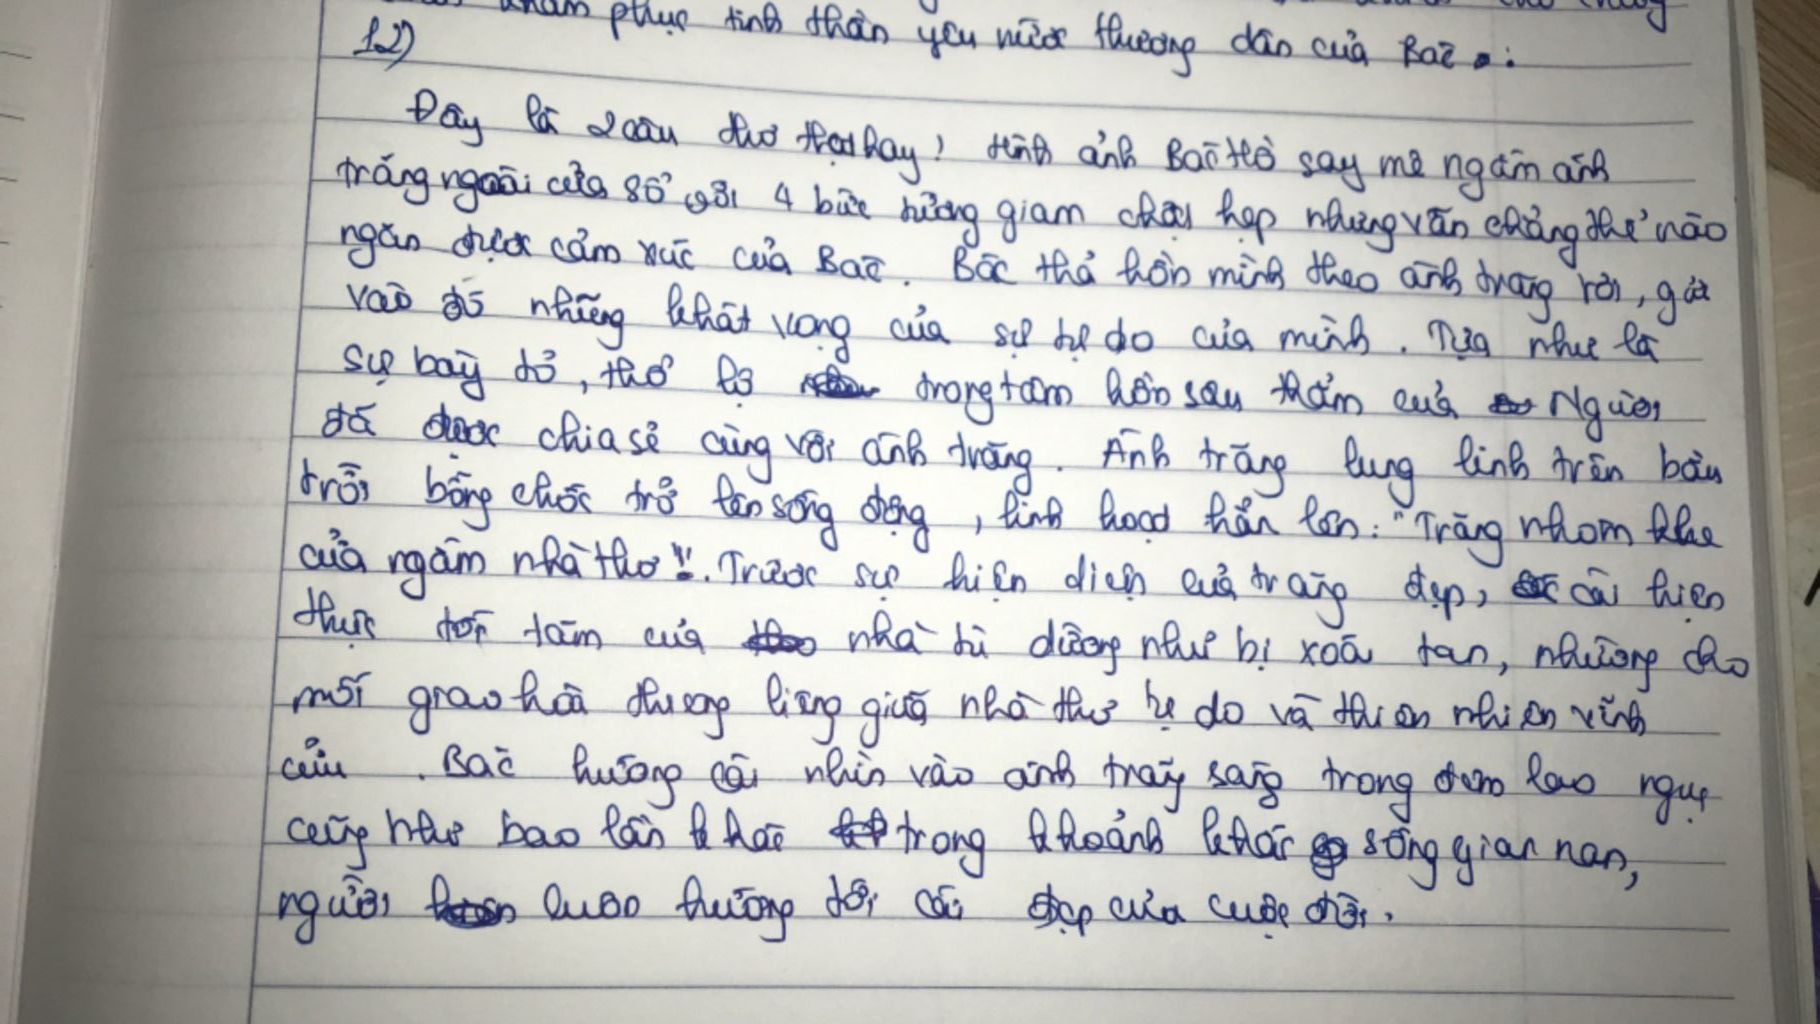 khâm phục tinh thần yêu nước thương dân của Bác.
12)
Đây là 2 câu thơ thật hay! Hình ảnh Bác Hồ say mê ngắm ánh
trăng ngoài cửa sổ với 4 bức tường giam chật hẹp nhưng vẫn chẳng thể nào
ngăn được cảm xúc của Bác. Bác thả hồn mình theo ánh trăng rồi, gửi
vào đó những khát vọng của sự tự do của mình. Tựa như là
sự bày tỏ, thổ lộ trong tâm hồn sâu thẳm của Người
đã được chia sẻ cùng với ánh trăng. Ánh trăng lung linh trên bầu
trời bỗng chốc trở lên sống động, linh hoạt hẳn lên: "Trăng nhòm khe
cửa ngắm nhà thơ"!. Trước sự hiện diện của trăng đẹp, cái hiện
thực tối tăm của nhà tù dường như bị xoá tan, nhường cho
mối giao hoà thương liêng giữa nhà thơ tự do và thiên nhiên vĩnh
cửu. Bác hướng cái nhìn vào ánh trăng sáng trong đêm lao ngục
cũng như bao lần khác trong khoảnh khắc sống gian nan,
người luôn hướng tới cái đẹp của cuộc đời.